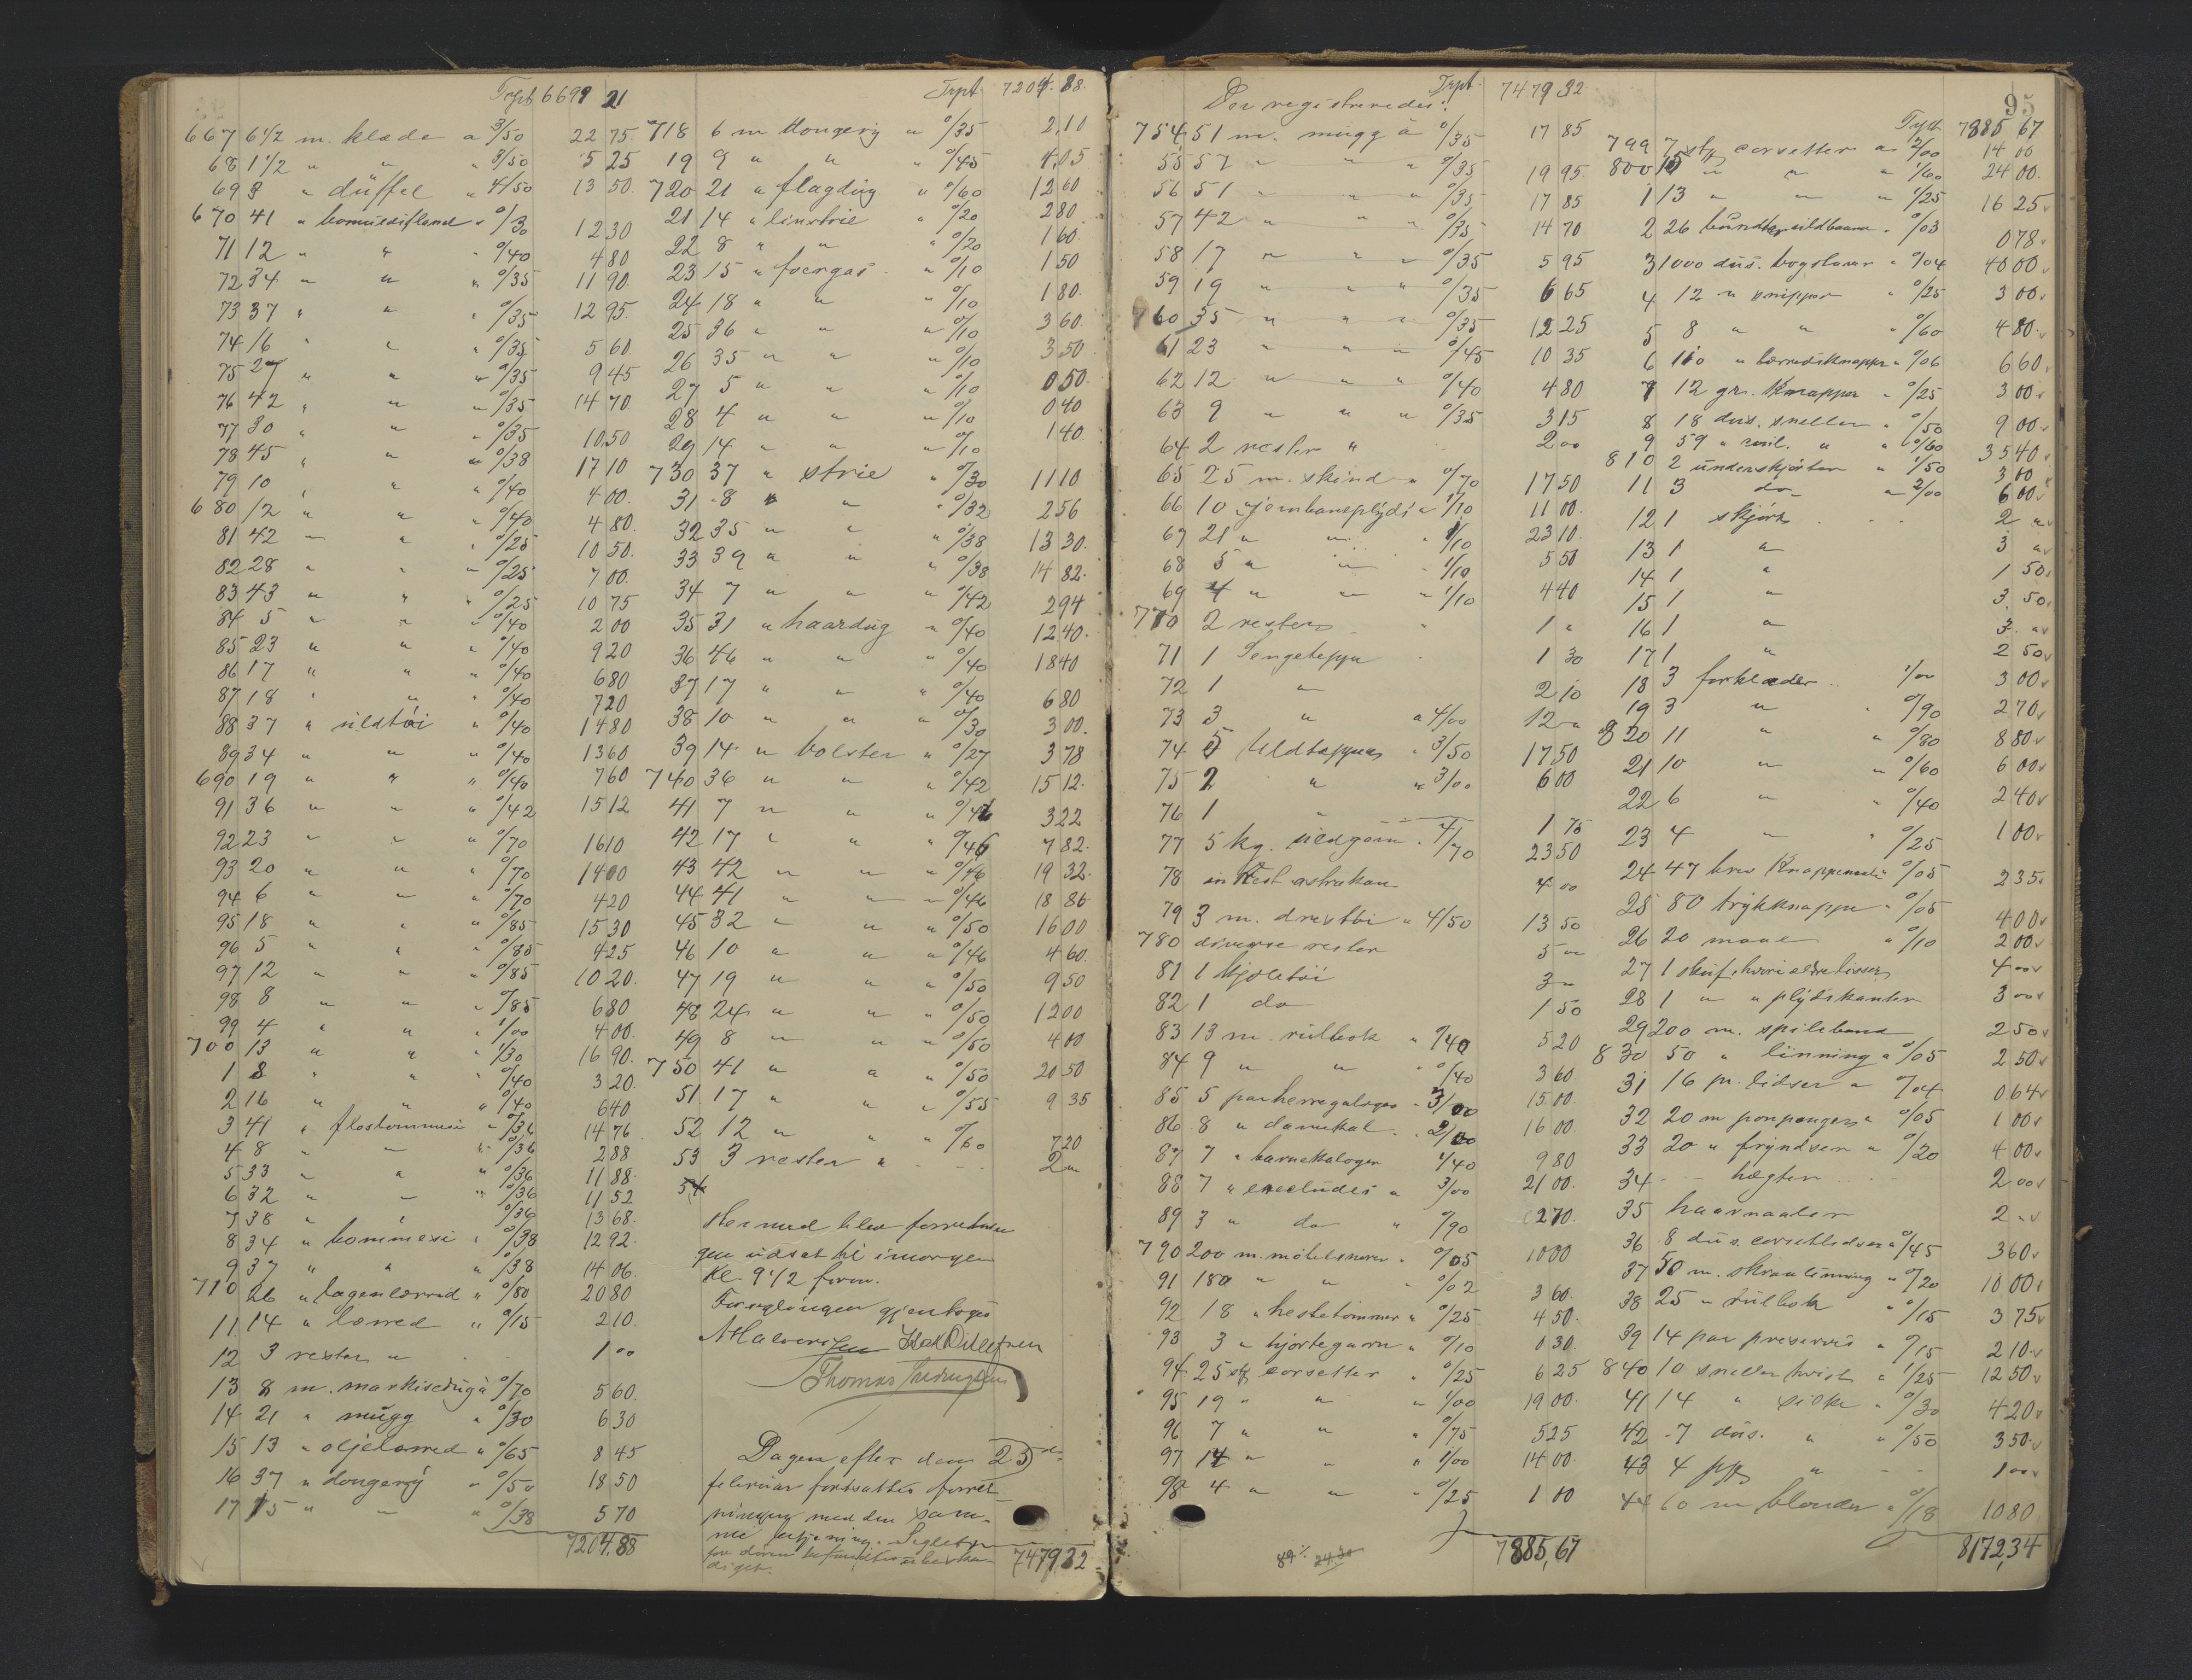 Trpt 6699 21
667 6 1/2 m. klæde a 3/50 22 75
68 1 1/2 " " " 3/50 5 25
69 3 " düffel " 4/50 13 50
670 41 " bomuldsflanel " 0/30 12 30
71 12 " " " 0/40 4 80
72 34 " " " 0/35 11 90
73 37 " " " 0/35 12 95
74 16 " " " 0/35 5 60
75 27 " " " 0/35 9 45
76 42 " " " 0/35 14 70
77 30 " " " 0/35 10 50
78 45 " " " 0/38 17 10
79 10 " " " 0/40 4 00
680 12 " " " 0/40 4 80
81 42 " " " 0/25 10 50
82 28 " " " 0/25 7 00
83 43 " " " 0/25 10 75
84 5 " " " 0/40 2 00
85 23 " " " 0/40 9 20
86 17 " " " 0/40 6 80
87 18 " " " 0/40 7 20
88 37 " uldtöi " 0/40 14 80
89 34 " " " 0/40 13 60
690 19 " " " 0/40 7 60
91 36 " " " 0/42 15 12
92 23 " " " 0/70 16 10
93 20 " " " 0/70 14 00
94 6 " " " 0/70 4 20
95 18 " " " 0/85 15 30
96 5 " " " 0/85 4 25
97 12 " " " 0/85 10 20
98 8 " " " 0/85 6 80
99 4 " " " 1/00 4 00
700 13 " " " 1/30 16 90
1 8 " " " 0/40 3 20
2 16 " " " 0/40 6 40
3 41 " " 0/36 14 76
4 8 " " " 0/36 2 88
5 33 " " " 0/36 11 88
6 32 " " " 0/36 11 52
7 38 " " " 0/36 13 68
8 34 " kommesi " 0/38 12 92
9 37 " " " 0/38 14 06
710 26 " lagenlærred " 0/80 20 80
11 14 " lærred " 0/15 2 10
12 3 rester " 1 00
13 8 m. markisedug à 0/70 5 60
14 21 " mugg " 0/30 6 30
15 13 " oljelærred " 0/65 8 45
16 37 " dongery " 0/50 18 50
17 15 " " " 0/38 5 70
7204,88
Trpt. 7204.88
718 6 m dongery a 0/35 2,10
19 9 " " " 0/45 4,05
720 21 " flagdug " 0/60 12 60
21 14 " linstrie " 0/20 2 80
22 8 " " " 0/20 1 60
23 15 " foergas " 0/10 1 50
24 18 " " " 0/10 1 80
25 36 " " " 0/10 3 60
26 35 " " " 0/10 3 50
27 5 " " " 0/10 0 50
28 4 " " " 0/10 0 40
29 14 " " " 0/10 1 40
730 37 " strie " 0/30 11 10
31 8 " " " 0/32 2 56
32 35 " " " 0/38 13 30
33 39 " " " 0/38 14 82
34 7 " " " 0/42 2 94
35 31 " haardug " 0/40 12 40
36 46 " " " 0/40 18 40
37 17 " " " 0/40 6 80
38 10 " " " 0/30 3 00
39 14 " bolster " 0/27 3 78
740 36 " " " 0/42 15 12
41 7 " " " 0/46 3 22
42 17 " " " 0/46 7 82
43 42 " " " 0/46 19 32
44 41 " " " 0/46 18 86
45 32 " " " 0/50 16 00
46 10 " " " 0/46 4 60
47 19 " " " 0/50 9 50
48 24 " " " 0/50 12 00
49 8 " " " 0/50 4 00
750 41 " " " 0/50 20 50
51 17 " " " 0/55 9 35
52 12 " " " 0/60 7 20
53 3 rester " 2 "
54
Hermed blev forretnin
gen udsat til imorgen
Kl. 9 1/2 form.
Forseglingen gjentoges
Dagen efter den 23de
februar fortsattes forret-
ningen med den sam-
me betjening. Seglet
for døren befandtes ubeska-
diget.
7479,32
Trpt. 7479 32
Der registreredes:
754 51 m. mugg à 0/35 17 85
55 57 " " " 0/35 19 95
56 51 " " " 0/35 17 85
57 42 " " " 0/35 14 70
58 17 " " " 0/35 5 95
59 19 " " " 0/35 6 65
760 35 " " " 0/35 12 25
61 23 " " " 0/45 10 35
62 12 " " " 0/40 4 80
63 9 " " " 0/35 3 15
64 2 rester " 2 00
65 25 m. skind " 0/70 17 50
66 10 " jernbaneplyds " 1/10 11 00
67 21 " " " 1/10 23 10
68 5 " " " 1/10 5 50
69 4 " " " 1/10 4 40
770 2 rester " 1 "
71 1 Sengeteppe 1 30
72 1 " 2 10
73 3 " a 4/00 12 "
74 5 Uldtepper " 3/50 17 50
75 2 " " 3/00 6 00
76 1 " 1 75
77 5 kg. uldgarn " 4/70 23 50
78 en Rest astrakan 4 00
79 3 m. drestöi " 4/50 13 50
780 diverse rester 5 00
81 1 kjoletöi 3 "
82 1 do 1 50
83 13 m. rülbok " 0/40 5 20
84 9 " " " 0/40 3 60
85 5 par herregaloger " 3/00 15 00
86 8 " damekal. " 2/00 16 00
87 7 " barnekaloger 1/40 9 80
88 7 " " 3/00 21 00
89 3 " do " 0/90 2 70
790 200 m. möbelsnorer " 0/05 10 00
91 180 " " " 0/02 3 60
92 18 " hestetömmer " 0/25 4 50
93 3 " hjortegarn " 0/10 0 30
94 25 stk corsetter " 0/25 6 25
95 19 " " " 1/00 19 00
96 7 " " " 0/75 5 25
97 14 " " " 1/00 14 00
98 4 " " " 0/25 1 00
7885,67
95
Trpt. 7885 67
799 7 stk corsetter a 2/00 14 00
800 15 " " " 1/60 24 00
1 13 " " " 1/25 16 25
2 26 " 0/03 0 78
3 1000 dus. bogstaver " 0/04 40 00
4 12 " snipper " 0/25 3 00
5 8 " " " 0/60 4 80
6 110 " lærredsknapper " 0/06 6 60
7 12 gr. Knapper " 0/25 3 00
8 18 dus. sneller " 0/50 9 00
9 59 " " " 0/60 35 40
810 2 underskjörter " 1/50 3 00
11 3 do " 2/00 6 00
12 1 skjört 2 "
13 1 " 3 "
14 1 " 1 50
15 1 " 3 50
16 1 " 3 "
17 1 " 2 50
18 3 forklæder 1/00 3 00
19 3 " " 0/90 2 70
820 11 " " 0/80 8 80
21 10 " " 0/60 6 00
22 6 " " 0/40 2 40
23 4 " " 0/25 1 00
24 47 brev Knappenaale 0/05 2 35
25 80 trykknapper " 0/05 4 00
26 20 " 0/10 2 00
27 1 skuf 4 00
28 1 " " plydskanter 3 00
29 200 m. spilebaand 2 50
830 50 " linning " 0/05 2 50
31 16 pr. lidser " 0/04 0 64
32 20 m ponponger " 0/05 1 00
33 20 " fryndser " 0/20 4 00
34 hegter 2 00
35 haarnaaler 2 "
36 8 dus. corsetlidser " 0/45 3 60
37 50 m. skraalinning " 0/20 10 00
38 25 " rülbok " 0/15 3 75
39 14 par preservis " 0/15 2 10
840 10 sneller tvist " 1/25 12 50
41 14 " silke " 0/30 4 20
42 7 dus. " " 0/50 3 50
43 4 " 1 00
44 60 m blonder " 0/18 10 80
8172,34